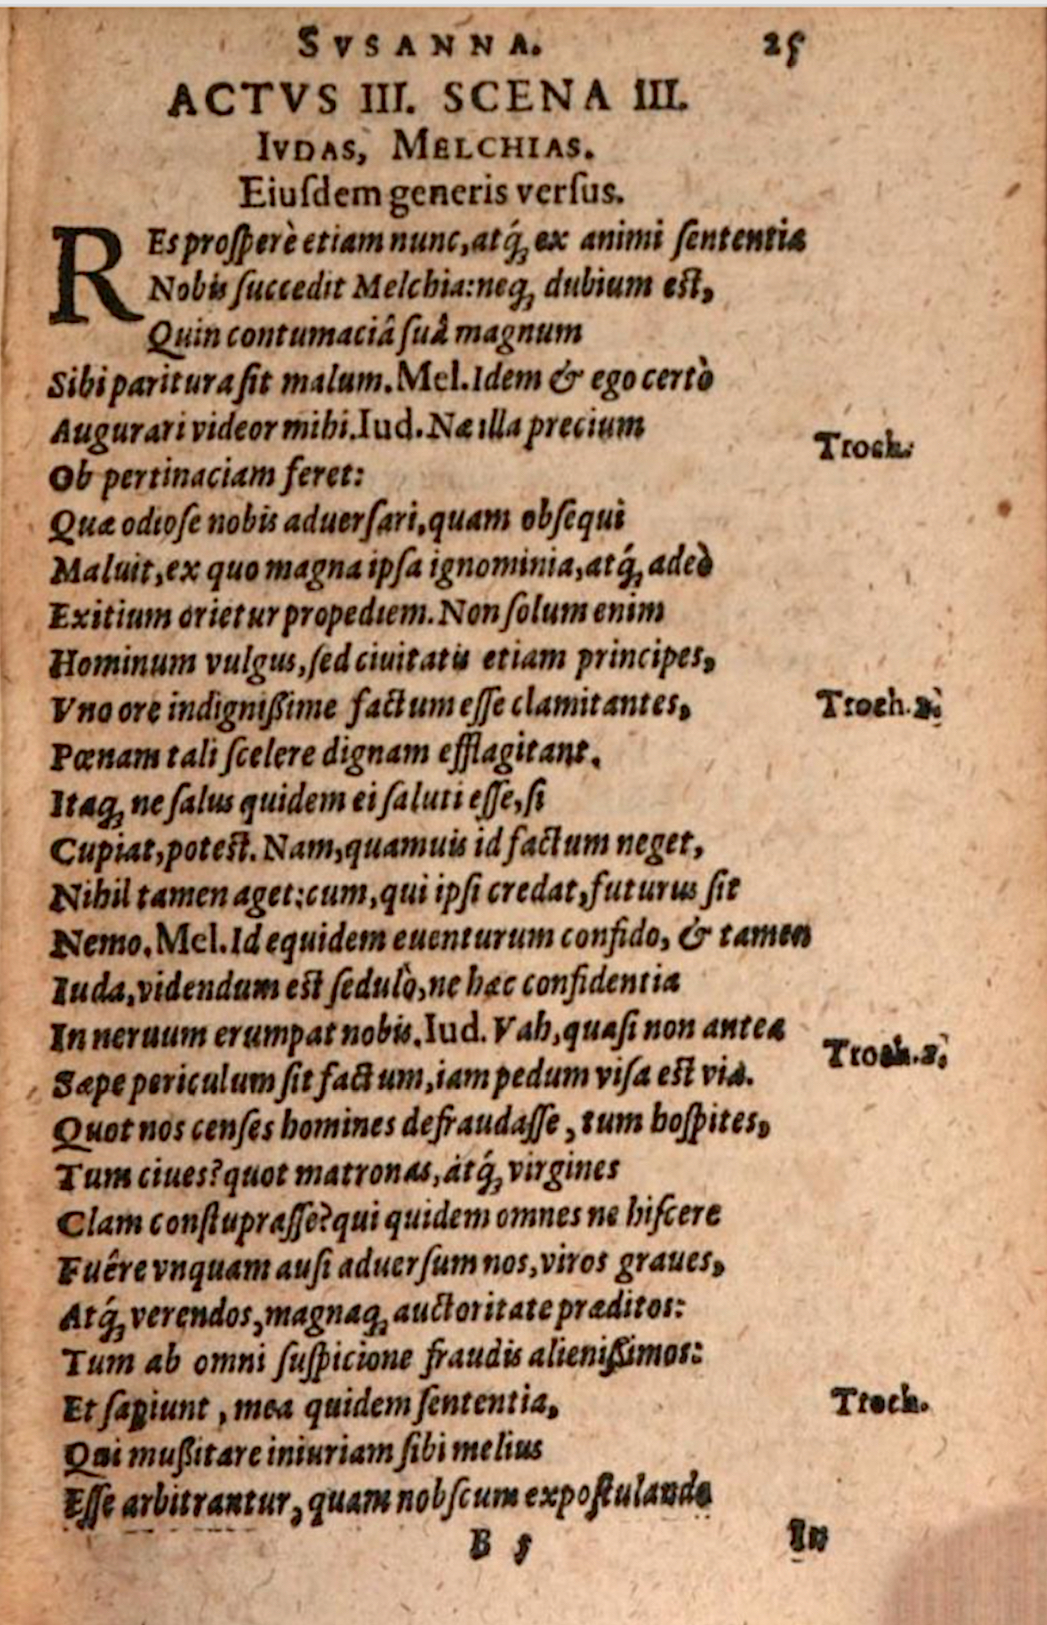 SVSANNA. 25
ACTVS III. SCENA III.
IVDAS, MELCHIAS.
Eiuſdem generis verſus.
REs proſperè etiam nunc, atq́ꝫ ex animi ſententia
Nobis ſuccedit Melchia: neqꝫ dubium eſt,
Quin contumaciâ ſuâ magnum
Sibi paritura ſit malum. Mel. Idem & ego certò
Augurari videor mihi. Iud. Næ illa precium
Troch.
Ob pertinaciam feret:
Quæ odioſe nobis aduerſari, quam obſequi
Maluit, ex quo magna ipſa ignominia, atq́ꝫ adeò
Exitium orietur propediem. Non ſolum enim
Hominum vulgus, ſed ciuitatis etiam principes,
Vno ore indignißime factum eſſe clamitantes, Troch. 2.
Pœnam tali ſcelere dignam efflagitant.
Itaqꝫ ne ſalus quidem ei ſaluti eſſe, ſi
Cupiat, poteſt. Nam, quamuis id factum neget,
Nihil tamen aget: cum, qui ipſi credat, futurus ſit
Nemo. Mel. Id equidem euenturum confido, & tamen
Iuda, videndum eſt ſedulò, ne hæc confidentia
In neruum erumpat nobis. Iud. Vah, quaſi non antea
Troch. 2.
Sæpe periculum ſit factum, iam pedum viſa eſt via.
Quot nos cenſes homines defraudaſſe, tum hoſpites,
Tum ciues? quot matronas, atq́ꝫ virgines
Clam conſtupraſſe? qui quidem omnes ne hiſcere
Fuêre vnquam auſi aduerſum nos, viros graues,
Atq́ꝫ verendos, magnaqꝫ auctoritate præditos:
Tum ab omni ſuſpicione fraudis alienißimos:
Et ſapiunt, mea quidem ſententia, Troch.
Qui mußitare iniuriam ſibi melius
Eſſe arbitrantur, quam nobſcum expoſtulando
B 5 In